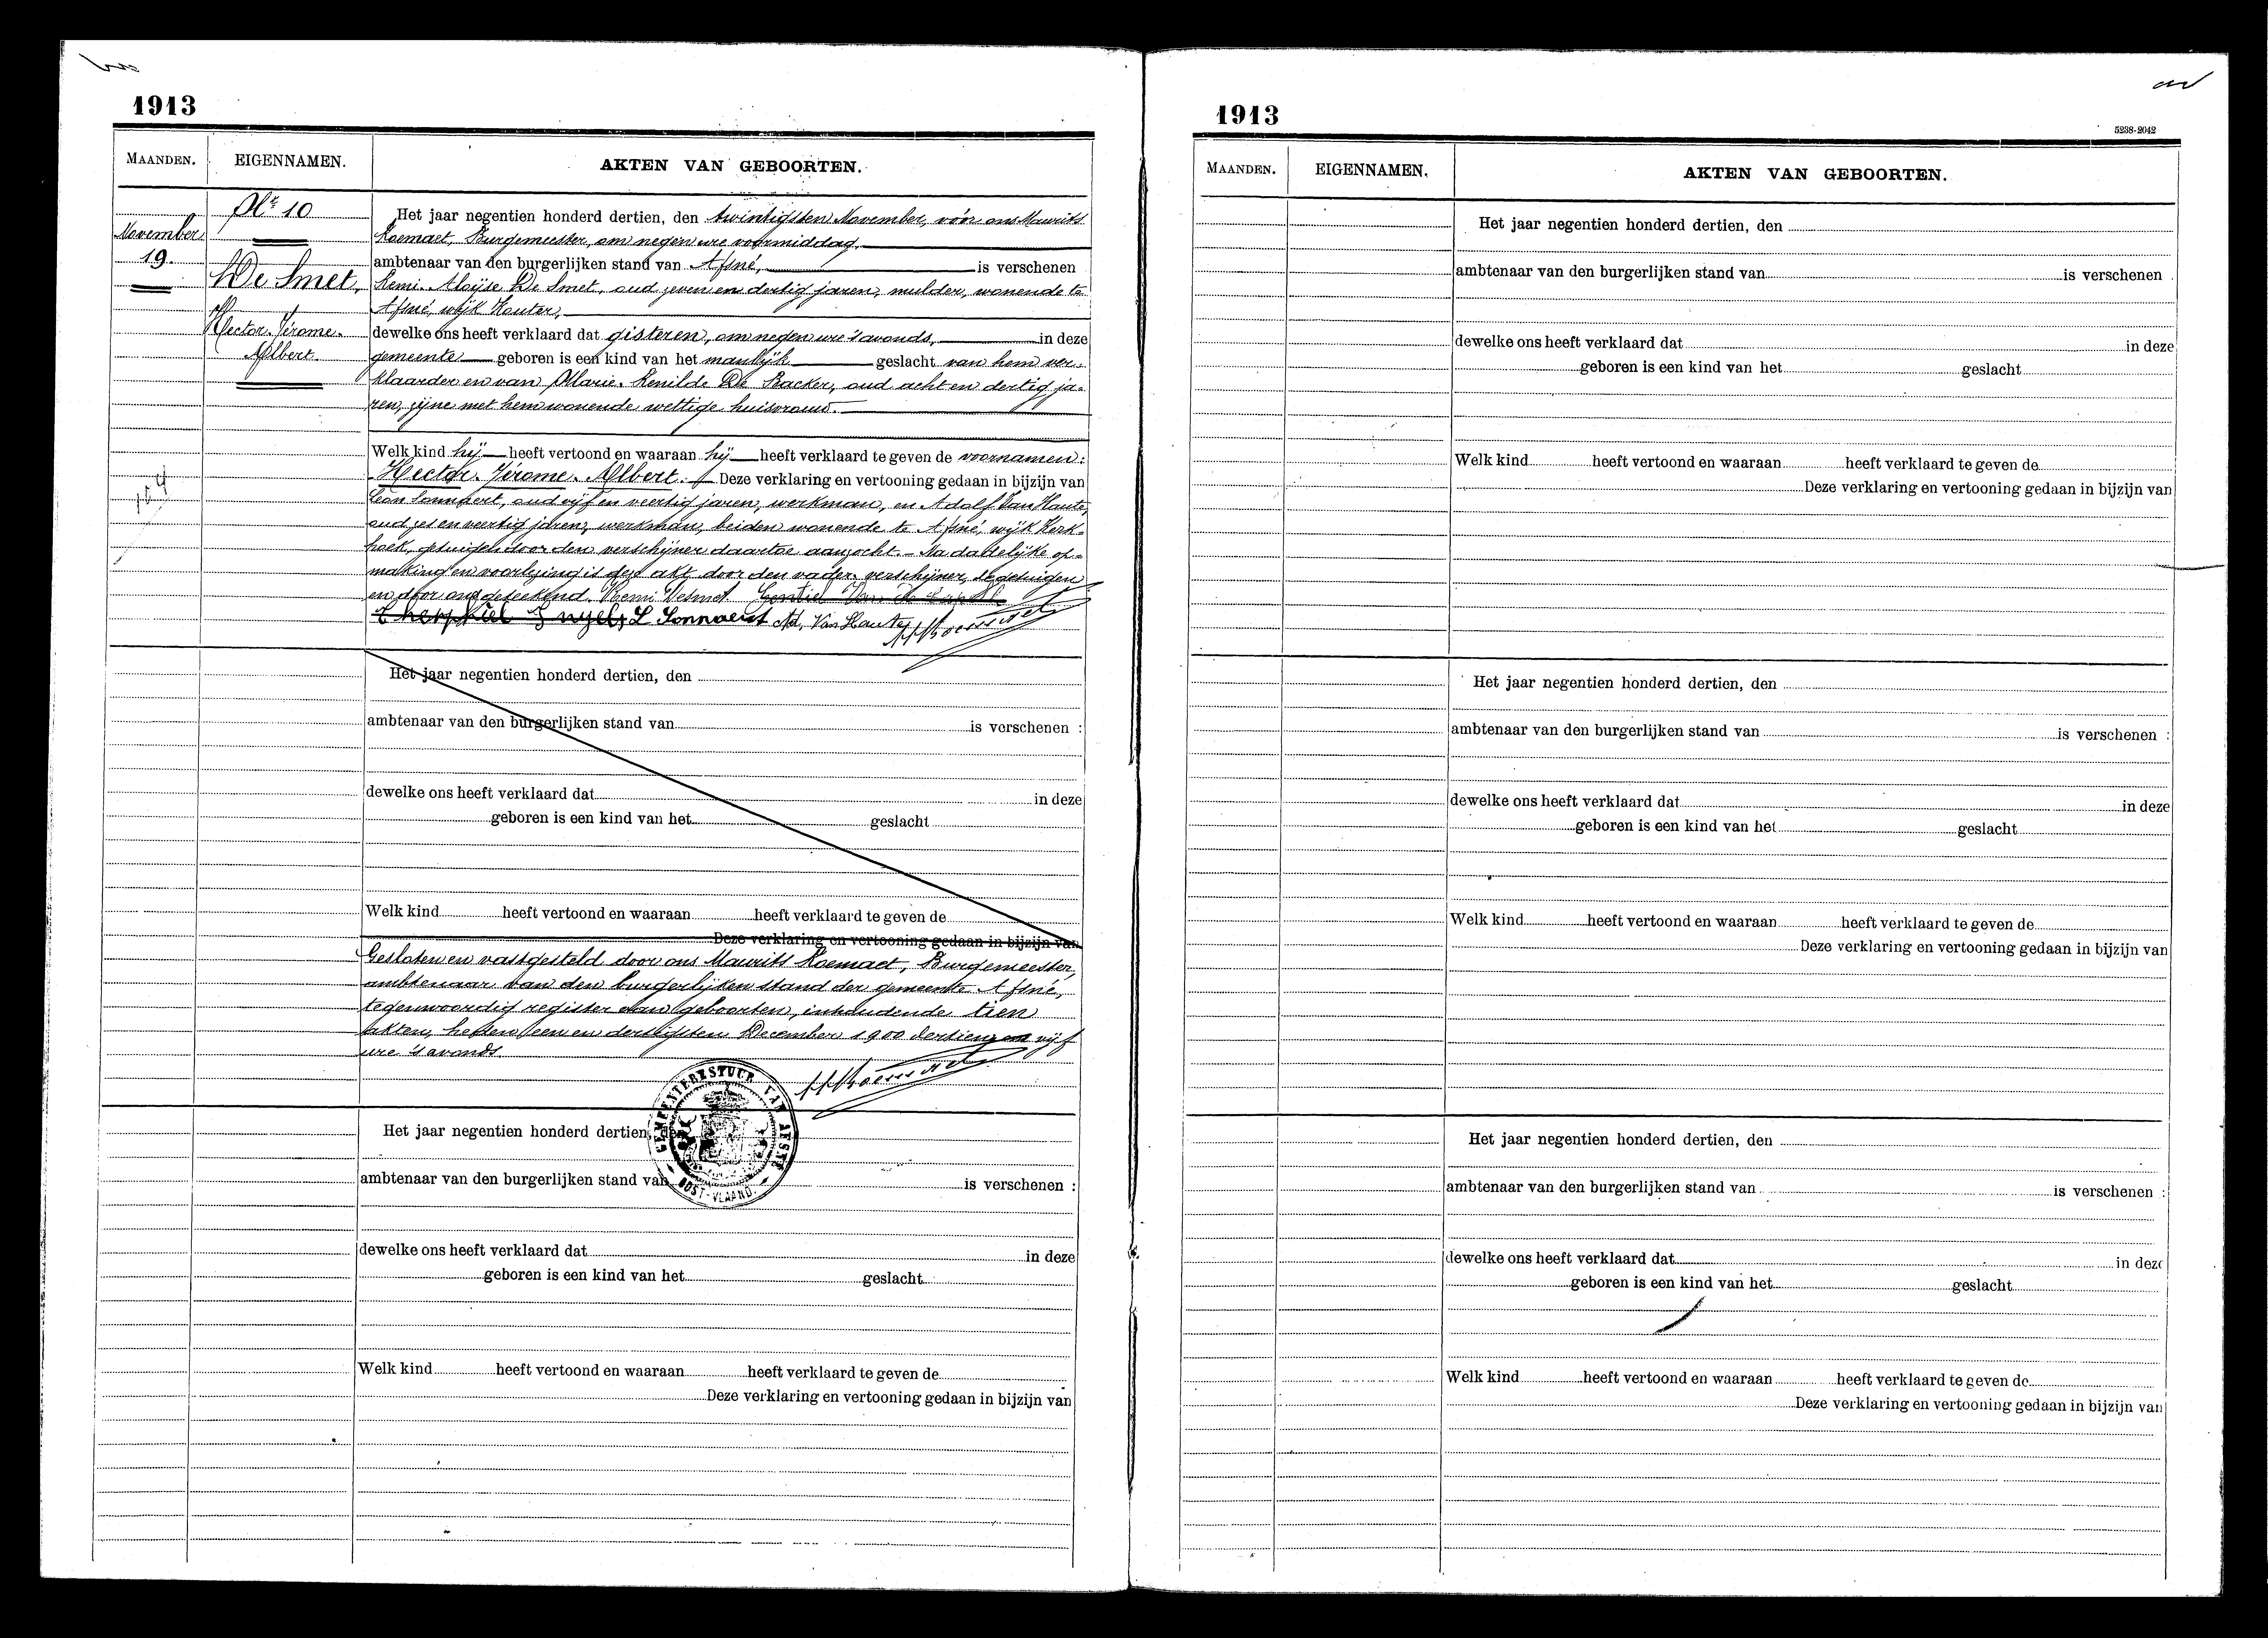 1913
MAANDEN.
EIGENNAMEN.
AKTEN VAN GEBOORTEN.
November
19.
Nr 10
De Smet,
Hector-Jérome-
Albert
Het jaar negentien honderd dertien, den twintigsten November, vóór ons Maurits
Roemaet, Burgemeester, om negen ure voormiddag,
ambtenaar van den burgerlijken stand van Afsné, is verschenen
Remi-Aloïse De Smet, oud zeven en dertig jaren, mulder, wonende te
Afsné, wijk Kouter,
dewelke ons heeft verklaard dat gisteren, om negen ure 's avonds, in deze
gemeente geboren is een kind van het manlijk geslacht van hem ver-
klaarder en van Marie-Renilde De Backer, oud acht en dertig ja-
ren, zijne met hem wonende wettige huisvrouw.
Welk kind hij heeft vertoond en waaraan hij heeft verklaard te geven de voornamen:
Hector-Jérome-Albert. Deze verklaring en vertooning gedaan in bijzijn van
Léon Sonnaert, oud vijf en veertig jaren, werkman, en Adolf Van Haute,
oud zes en veertig jaren, werkman, beiden wonende te Afsné, wijk Kerk-
hoek, getuigen door den verschijner daartoe aanzocht. - Na dadelijke op-
making en voorlezing is deze akt door den vader-verschijner, de getuigen
en door ons geteekend. Remi Desmet
Engels L Sonnaert Ad, Van Haute
M Roemaet
Het jaar negentien honderd dertien, den
ambtenaar van den burgerlijken stand van is verschenen :
dewelke ons heeft verklaard dat in deze
geboren is een kind van het geslacht
Welk kind heeft vertoond en waaraan heeft verklaard te geven de
Deze verklaring en vertooning gedaan in bijzijn van
Gesloten en vastgesteld door ons Maurits Roemaet, Burgemeester,
ambtenaar van den burgerlijken stand der gemeente Afsné,
tegenwoordig register van geboorten, inhoudende tien
akten, heden een en dertigsten December 1900 dertien, om vijf
ure 's avonds
M Roemaet
GEMEENTEBESTUUR VAN AFSNÉ
OOST-VLAAND.
Het jaar negentien honderd dertien, den
ambtenaar van den burgerlijken stand van is verschenen :
dewelke ons heeft verklaard dat in deze
geboren is een kind van het geslacht
Welk kind heeft vertoond en waaraan heeft verklaard te geven de
Deze verklaring en vertooning gedaan in bijzijn van
1913
5238-2042
MAANDEN.
EIGENNAMEN.
AKTEN VAN GEBOORTEN.
Het jaar negentien honderd dertien, den
ambtenaar van den burgerlijken stand van is verschenen
dewelke ons heeft verklaard dat in deze
geboren is een kind van het geslacht
Welk kind heeft vertoond en waaraan heeft verklaard te geven de
Deze verklaring en vertooning gedaan in bijzijn van
Het jaar negentien honderd dertien, den
ambtenaar van den burgerlijken stand van is verschenen :
dewelke ons heeft verklaard dat in deze
geboren is een kind van het geslacht
Welk kind heeft vertoond en waaraan heeft verklaard te geven de
Deze verklaring en vertooning gedaan in bijzijn van
Het jaar negentien honderd dertien, den
ambtenaar van den burgerlijken stand van is verschenen :
dewelke ons heeft verklaard dat in deze
geboren is een kind van het geslacht
Welk kind heeft vertoond en waaraan heeft verklaard te geven de
Deze verklaring en vertooning gedaan in bijzijn van